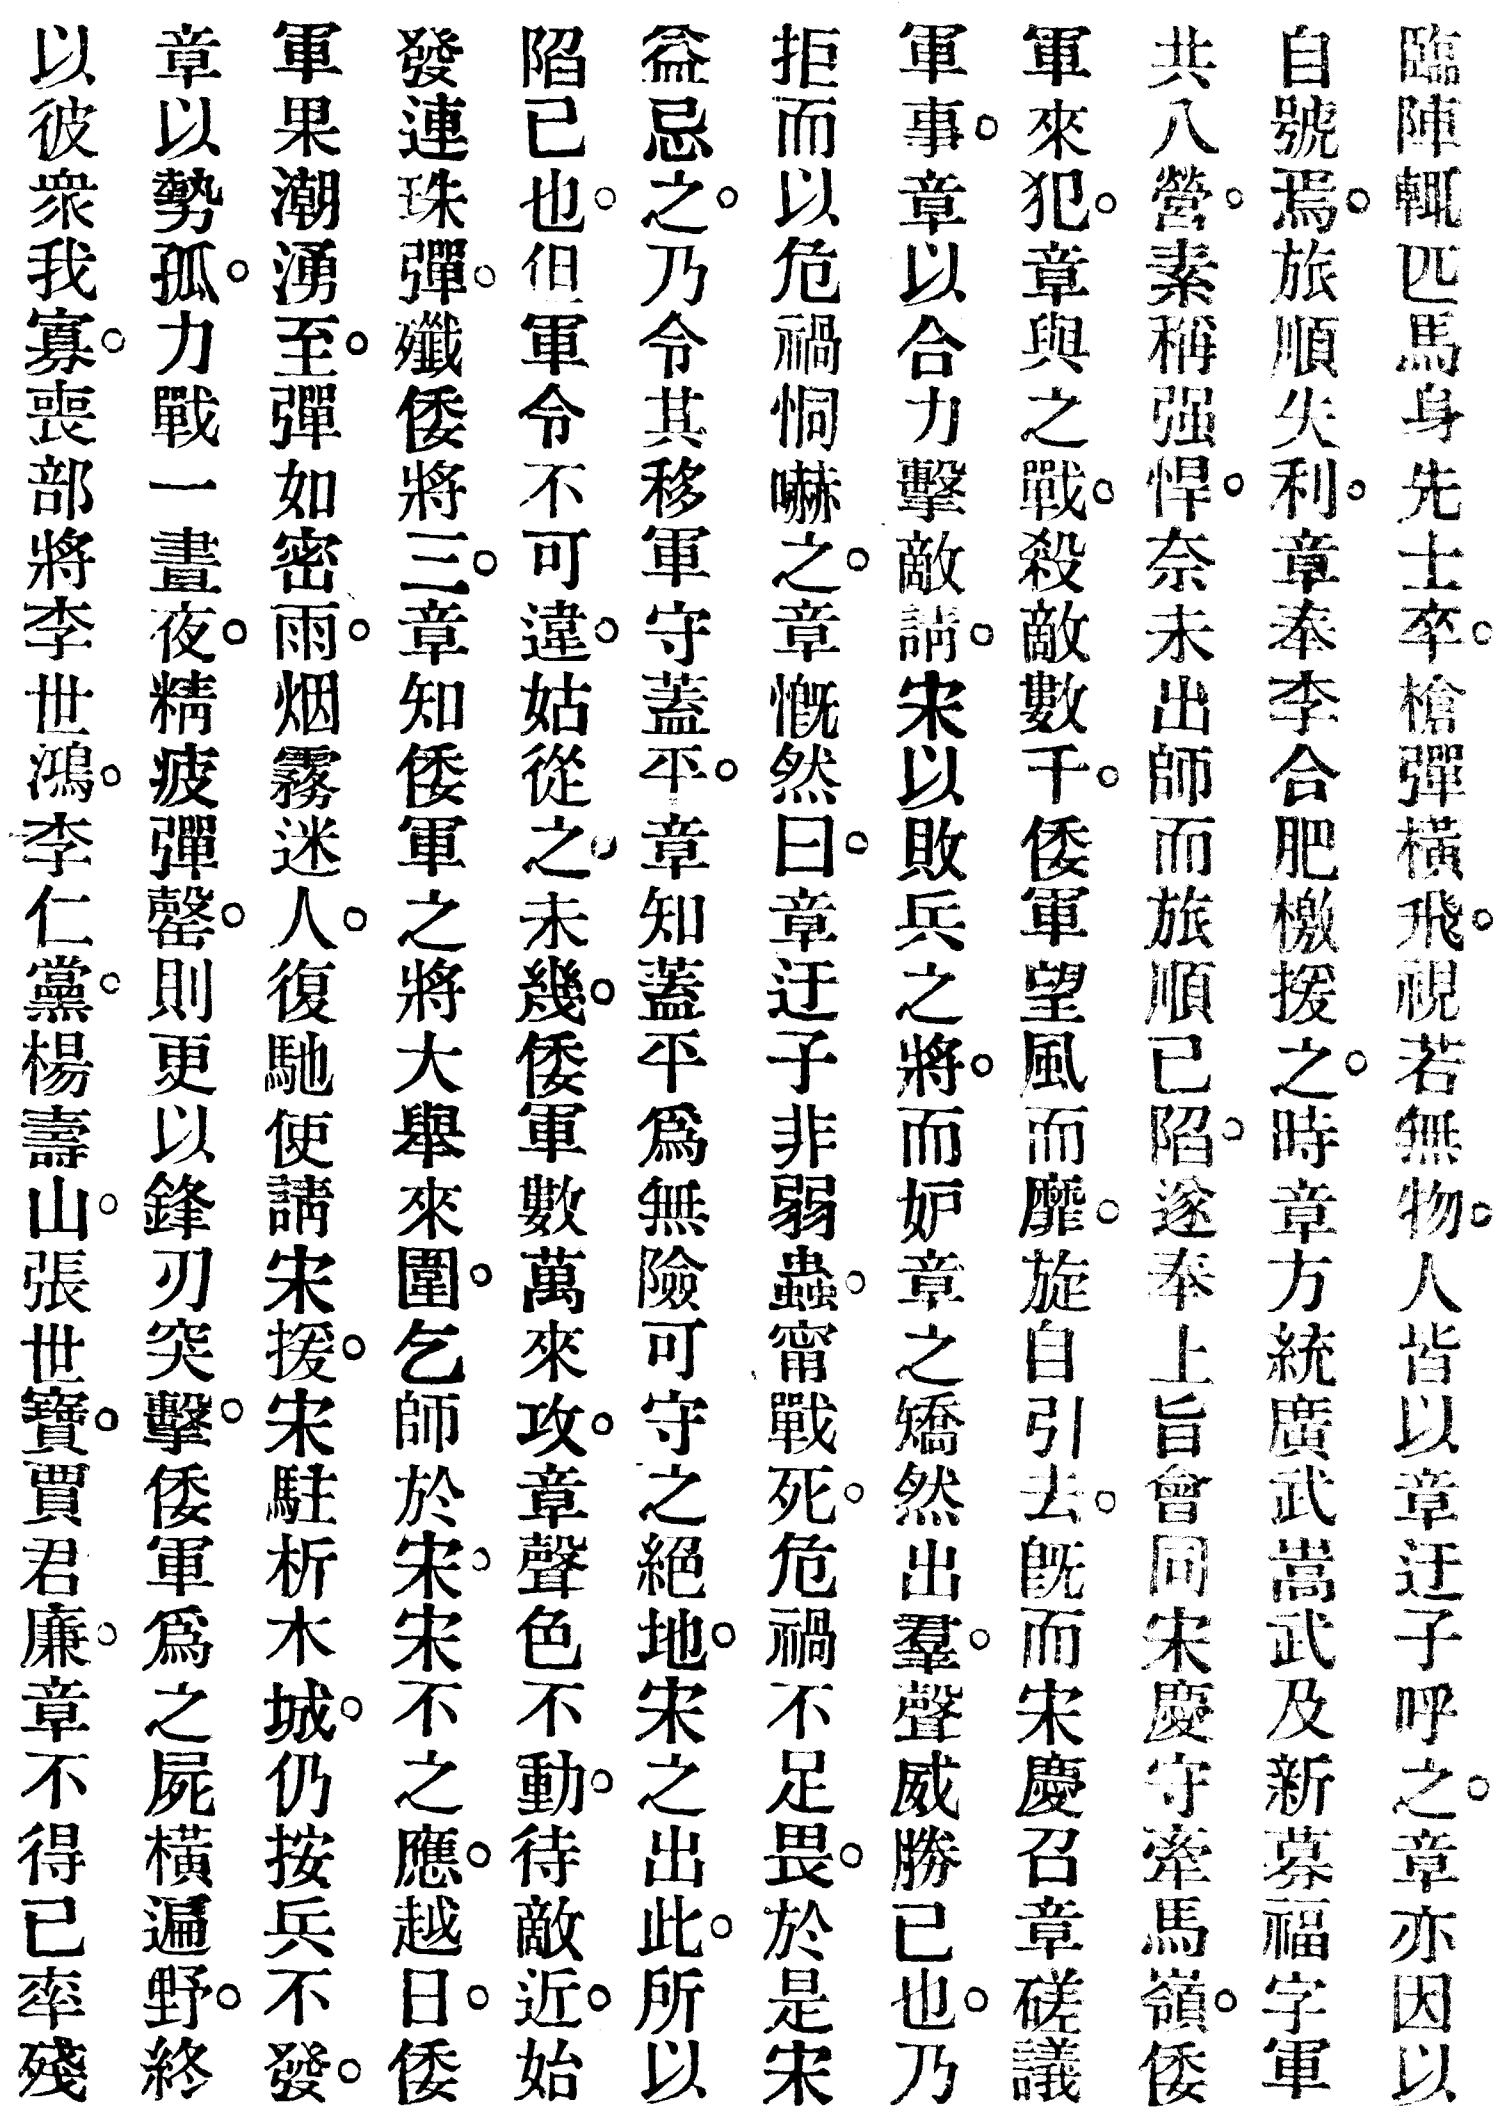 臨陣輒匹馬身先士卒。槍彈橫飛。視若無物。人皆以章迂子呼之。章亦因以
自號焉。旅順失利。章奉李合肥檄援之。時章方統廣武嵩武及新募福字軍
共八營。素稱强悍。奈未出師而旅順已陷。遂奉上旨會同宋慶守牽馬嶺。倭
軍來犯。章與之戰。殺敵數千。倭軍望風而靡。旋自引去。旣而宋慶召章磋議
軍事。章以合力擊敵請。宋以敗兵之將。而妒章之矯然出羣。聲威勝已也。乃
拒而以危禍恫嚇之。章慨然曰。章迂子非弱蟲。甯戰死。危禍不足畏。於是宋
益忌之。乃令其移軍守蓋平。章知蓋平爲無險可守之絕地。宋之出此。所以
陷已也。但軍令不可違。姑從之。未幾。倭軍數萬來攻。章聲色不動。待敵近。始
發連珠彈。殲倭將三。章知倭軍之將大舉來圍。乞師於宋。宋不之應。越日。倭
軍果潮湧至。彈如密雨。烟霧迷人。復馳使請宋援。宋駐析木城。仍按兵不發。
章以勢孤。力戰一晝夜。精疲彈罄。則更以鋒刃突擊。倭軍爲之屍橫遍野。終
以彼衆我寡。喪部將李世鴻。李仁黨。楊壽山。張世寶。賈君廉。章不得已率殘